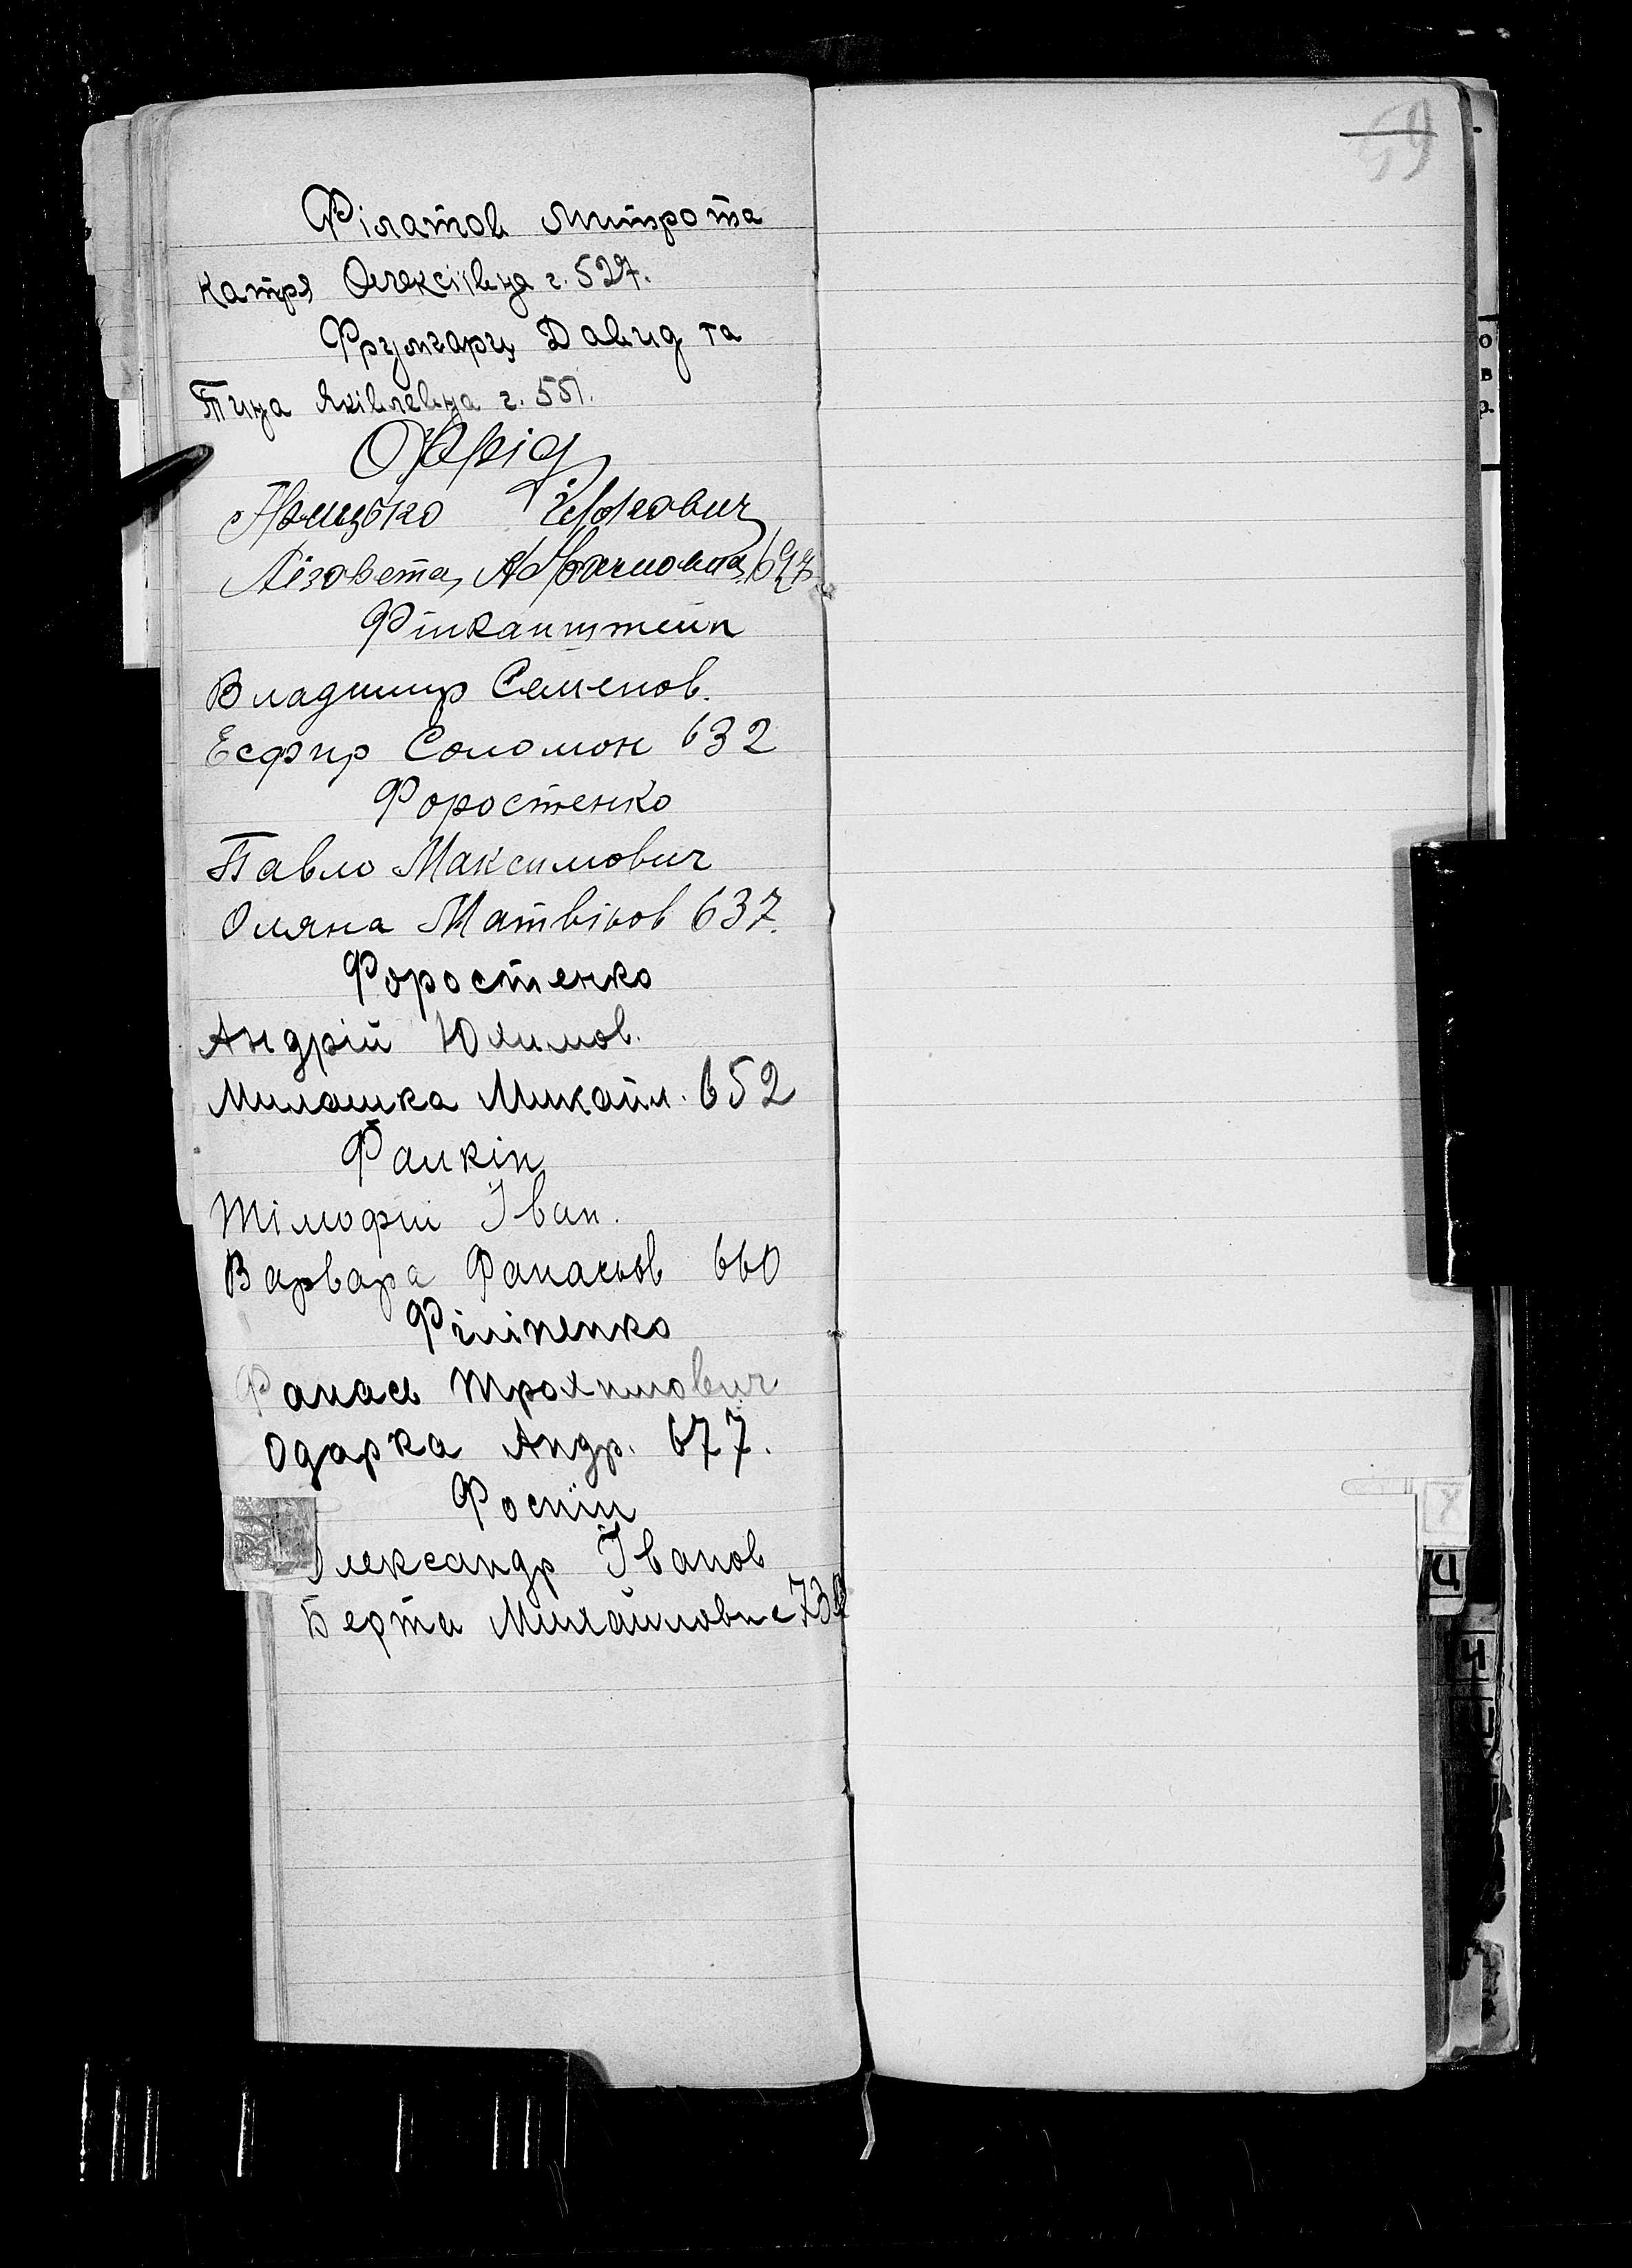 59
Філатов Митро та
Катря Олексіївна г. 527.
Фрумгарц Давид та
Тина Яківлевна г. 551.
Лізовета 627
Фінканштеин
Владимир Семенов.
Есфир Соломон 632
Форостенко
Павло Максимович
Оляна Матвіьов 637.
Форостенко
Андрій Юхимов.
Милашка Михайл. 652
Фаикін
Тімофіи Іван.
Варвара Фанасьов 660
Філіпенко
Фанась Трохимович
Одарка Андр. 677.
Фосиін
Олександр Іванов
Берта Михаиловн
о
в
р.
Х
Ц
Ч